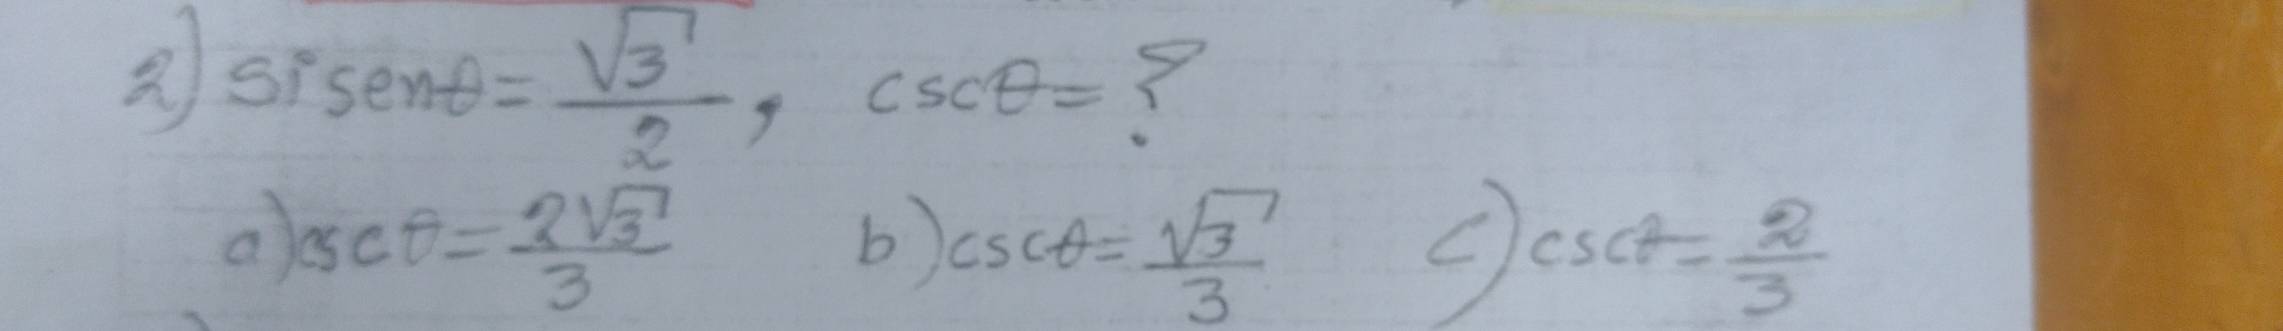 2) Si senθ = √3/2, cscθ = ?
a) cscθ = 2√3/3 b) cscθ = √3/3 c) cscθ = 2/3